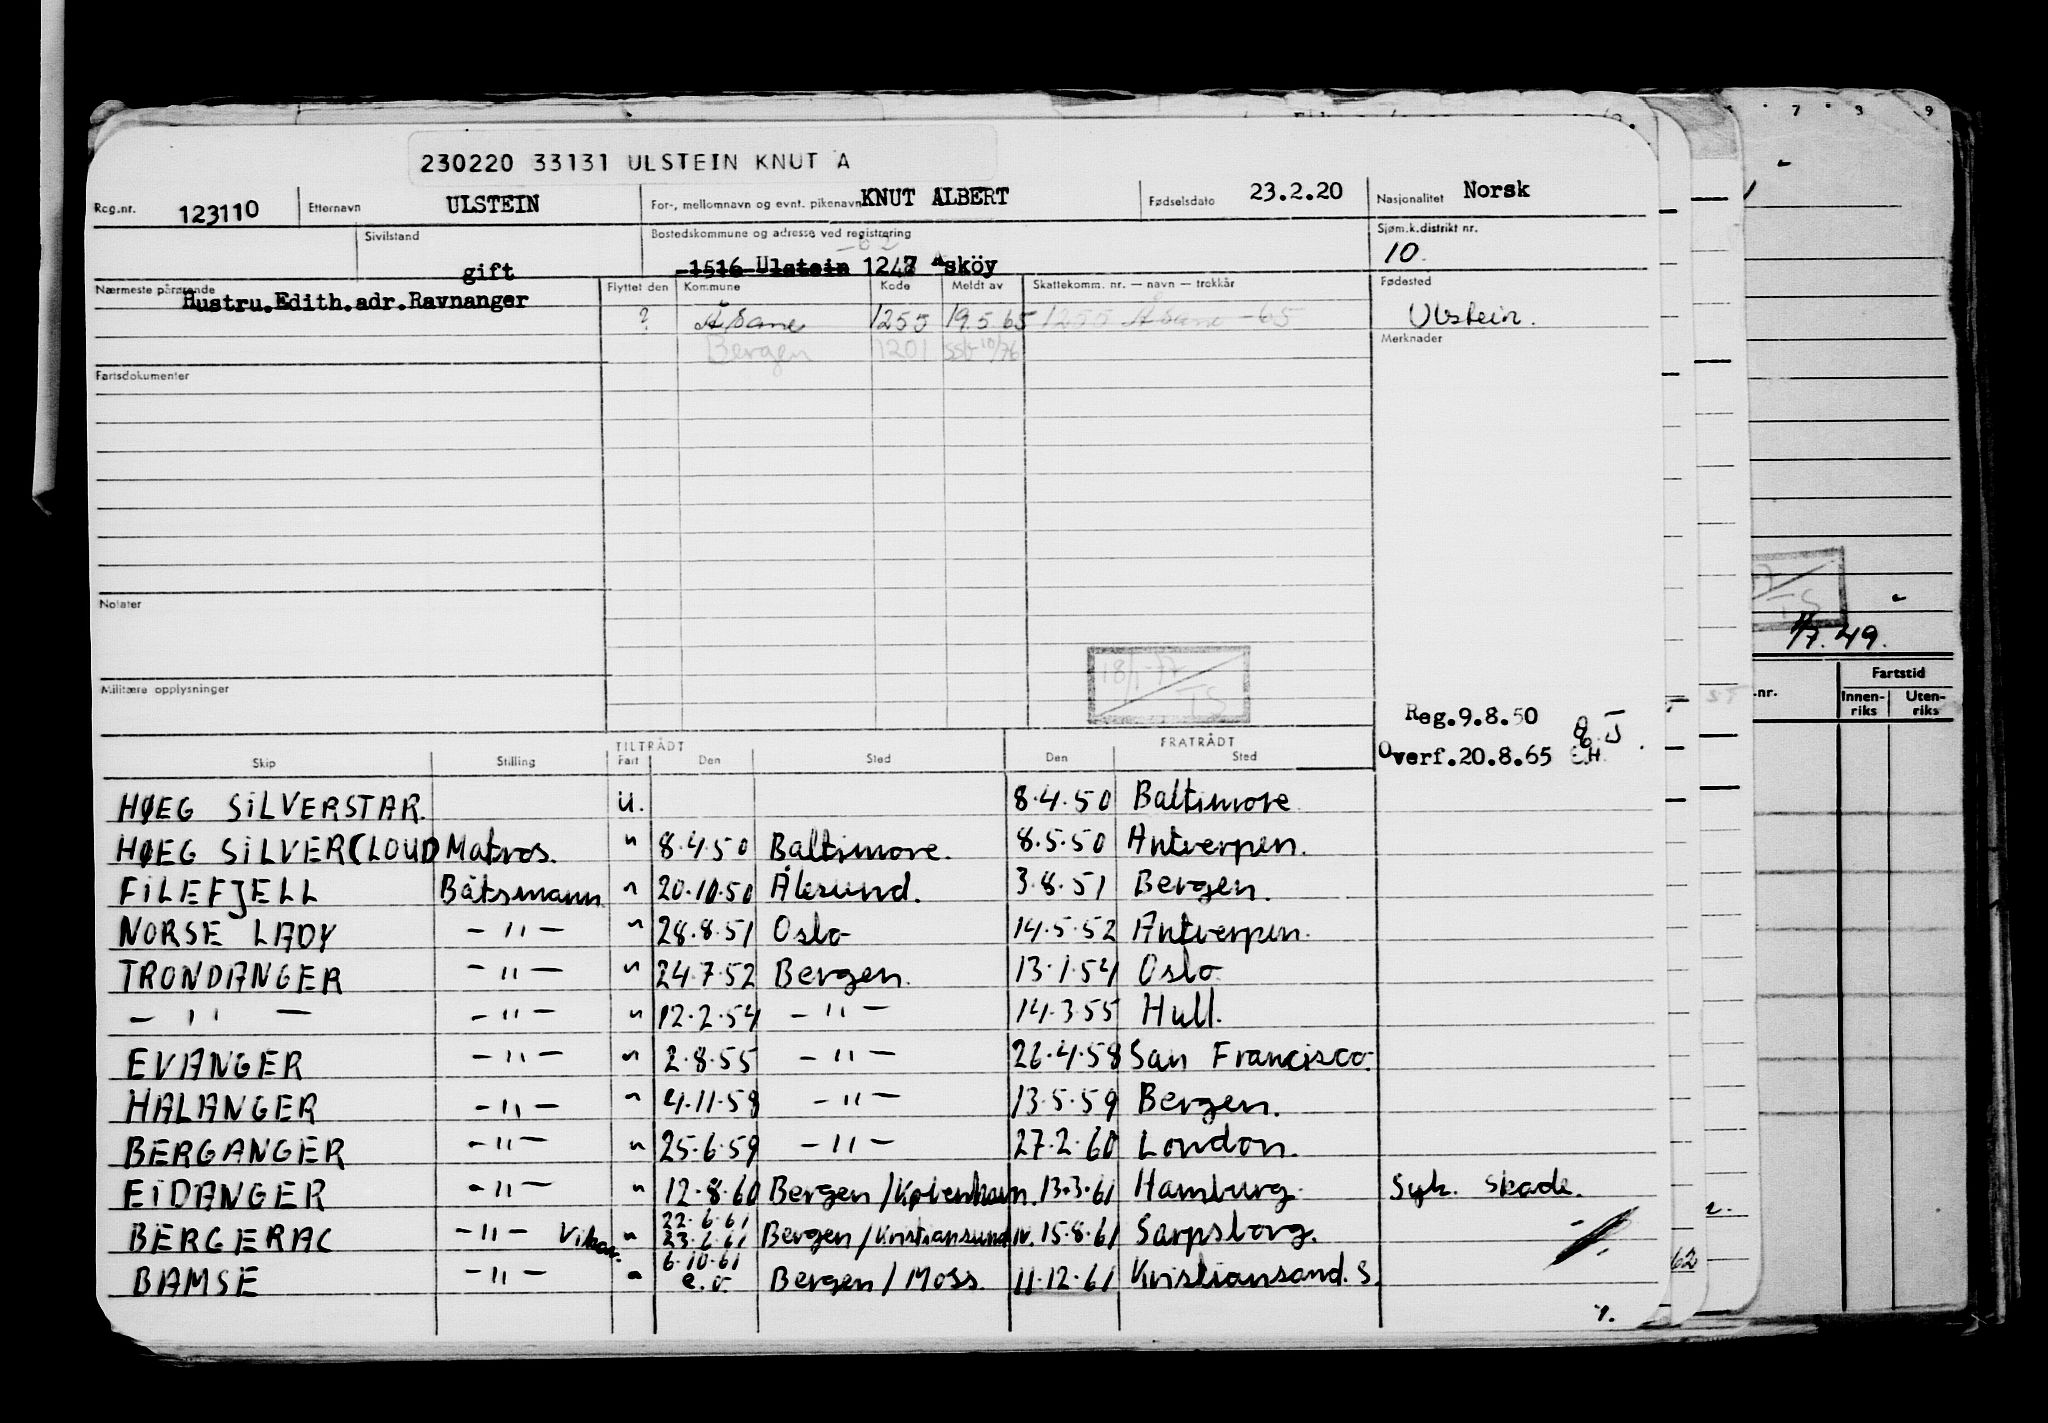 230220 33131 ULSTEIN KNUT A
Reg.nr. 123110 Etternavn ULSTEIN For-, mellomnavn og evnt. pikenavn KNUT ALBERT Fødselsdato 23.2.20 Nasjonalitet Norsk
Sivilstand gift Bostedskommune og adresse ved registrering 1516 Ulstein 1247 Asköy Sjøm.k.distrikt nr. 10.
Nærmeste pårørende Hustru.Edith.adr.Ravnanger Flyttet den Kommune Kode Meldt av Skattekomm. nr. — navn — trekkår Fødested Ulstein.
? Åsane 1255 19.5.65 1255 Åsane -65
Bergen 1201 SSb 10/76 Merknader
Fartsdokumenter
Notater
7/7.49.
18/1-77
TS
Militære opplysninger
Reg.9.8.50
Overf.20.8.65 E.H.
nr. Fartstid
Innen-riks Uten-riks
TILTRÅDT FRATRÅDT
Skip Stilling Fart Den Sted Den Sted
HØEG SILVERSTAR. U. 8.4.50 Baltimore
HØEG SILVERCLOUD Matros. " 8.4.50 Baltimore. 8.5.50 Antverpen.
FILEFJELL Båtsmann " 20.10.50 Ålesund. 3.8.51 Bergen.
NORSE LADY - " - " 28.8.51 Oslo 14.5.52 Antverpen.
TRONDANGER - " - " 24.7.52 Bergen. 13.1.54 Oslo
- " - - " - " 12.2.54 - " - 14.3.55 Hull.
EVANGER - " - " 2.8.55 - " - 26.4.58 San Francisco.
HALANGER - " - " 4.11.58 - " - 13.5.59 Bergen.
BERGANGER - " - " 25.6.59 - " - 27.2.60 London.
EIDANGER - " - " 12.8.60 Bergen/København. 13.3.61 Hamburg. Syk. skade.
BERGERAC - " - Vikar. " 22.6.61 23.6.61 Bergen/Kristiansund N. 15.8.61 Sarpsborg.
BAMSE - " - " 6.10.61 e.o. Bergen/Moss 11.12.61 Kristiansand. S.
62